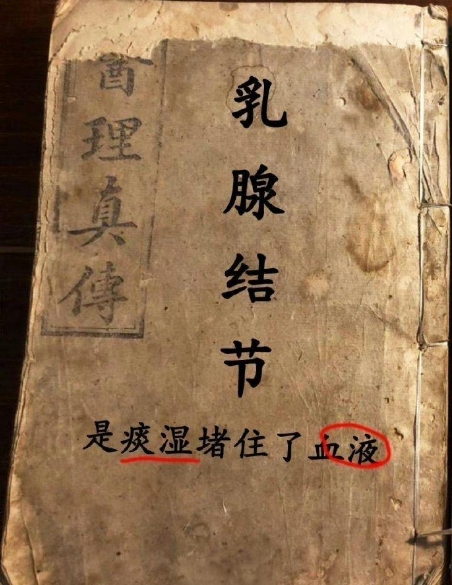 醫理真傳
乳腺结节
是痰湿堵住了血液